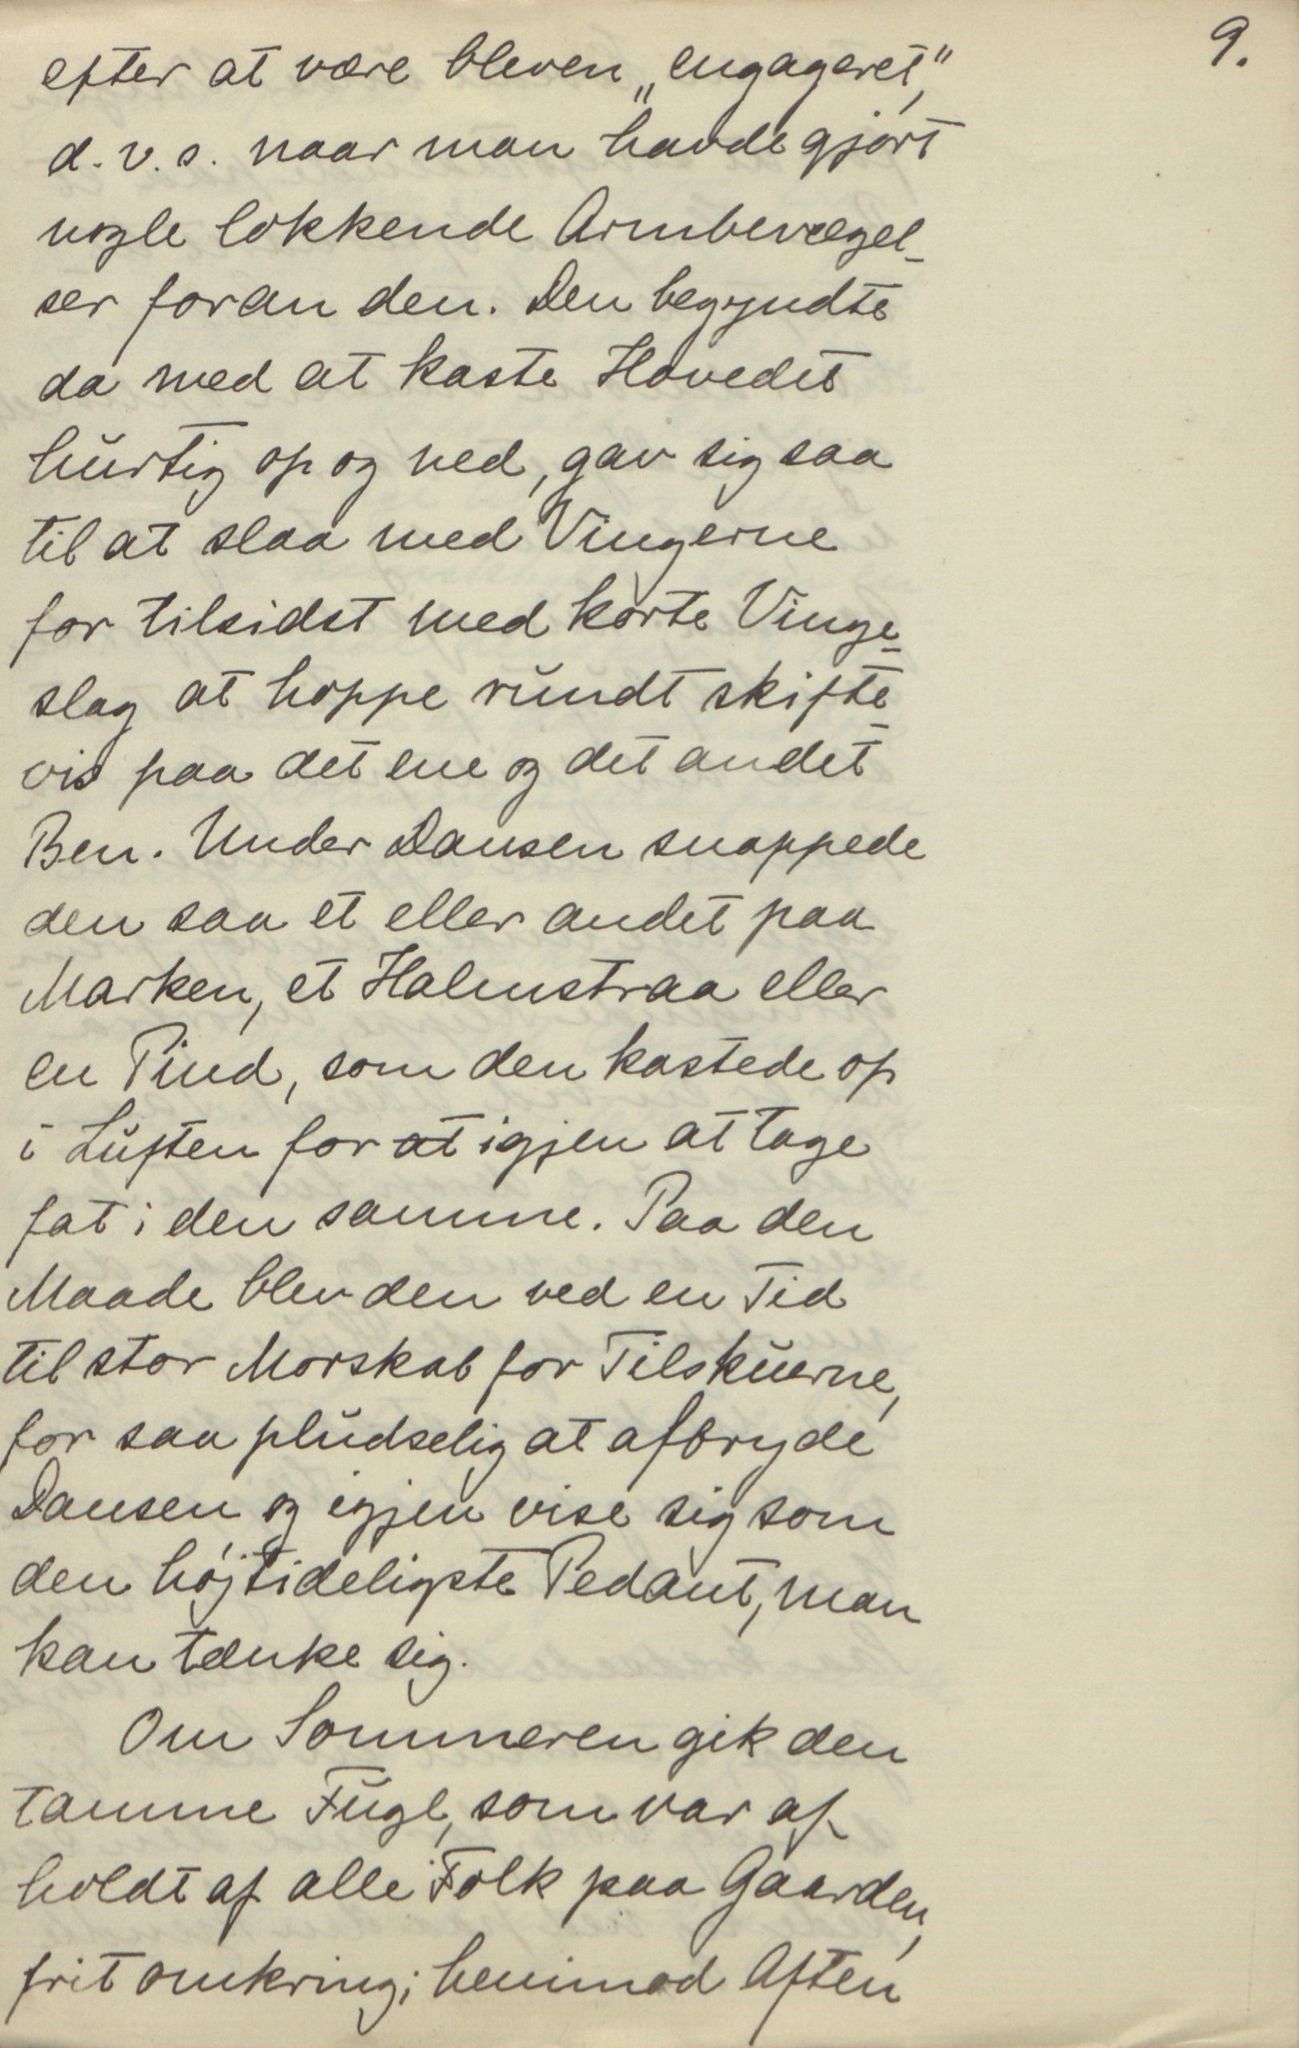 9.
efter at være bleven „engageret,”
d.v.s. naar man havde gjort
nogle lokkende Armbevægel-
ser foran den. Den begyndte
da med at kaste Hovedet
hurtig op og ned, gav sig saa
til at slaa med Vingerne
for tilsidst med korte Vinge-
slag at hoppe rundt skifte-
vis paa det ene og det andet
Ben. Under Dansen snappede
den saa et eller andet paa
Marken, et Halmstraa eller
en Pind, som den kastede op
i Luften for at igjen at tage
fat i den samme. Paa den
Maade blev den ved en Tid
til stor Morskab for Tilskuerne,
for saa pludselig at afbryde
Dansen og igjen vise sig som
den højtideligste Pedant, man
kan tænke sig.
Om Sommeren gik den
tamme Fugl, som var af-
holdt af alle Folk paa Gaarden,
frit omkring; henimod Aften